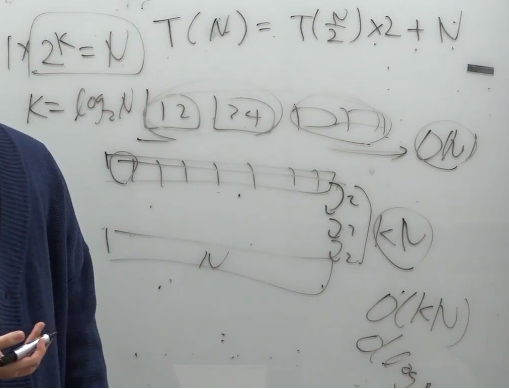 1×2^K=N T(N)=T(N/2)×2+N
K=log₂N 12 34 O(N)
2
2
2
kN
N
O(kN)
O(log₂